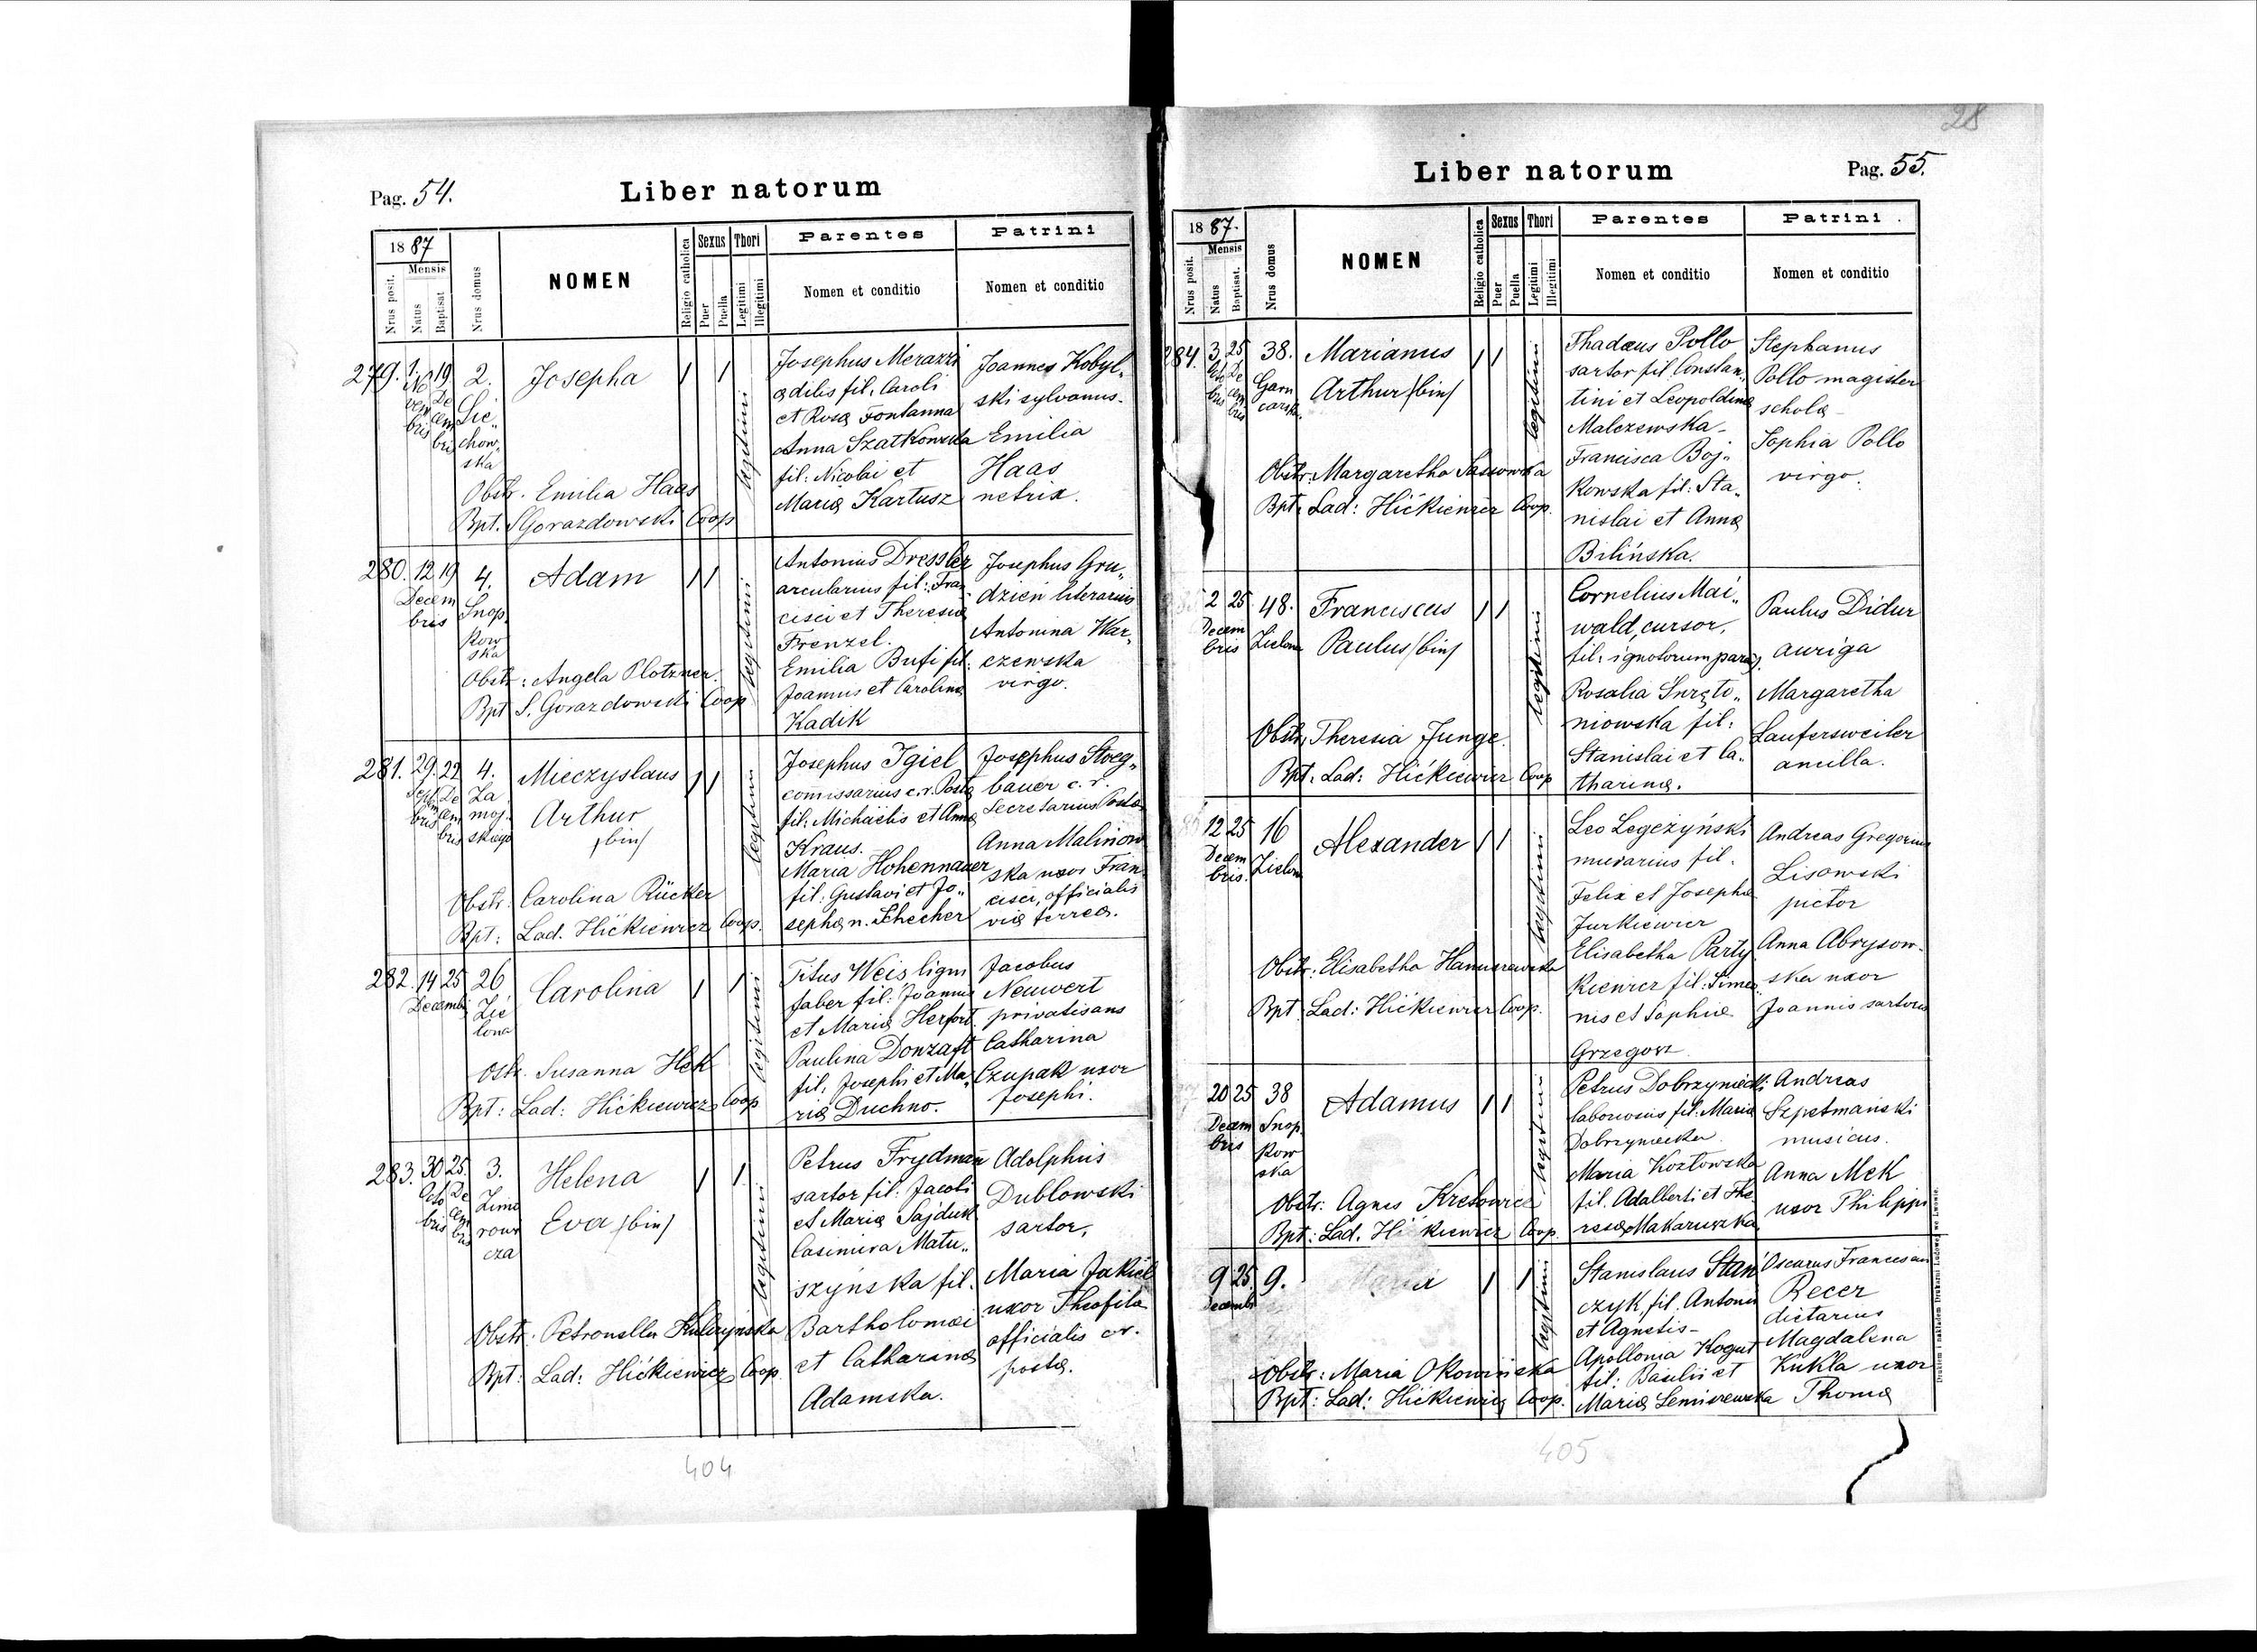 Pag. 54.
Liber natorum
1887
Nrus posit.
Mensis
Natus
Baptisat
Nrus domus
NOMEN
Religio catholica
Sexus
Puer
Puella
Thori
Legitimi
Illegitimi
Parentes
Nomen et conditio
Patrini
Nomen et conditio
279. 1. 19 2. Josepha / /
No De
vem cem
bris bris
Sie„
chow„
ska
legitimi
Obstr. Emilia Haas
Bpt. S Gorazdowski Coop
Josephus Merazzi
ædilis fil. Caroli
et Rosæ Fontanna
Anna Szatkowska
fil: Nicolai et
Mariæ Kartusz
Joannes Kobyl„
ski sylvanus.
Emilia
Haas
netrix.
280. 12 19 4. Adam / /
Decem
bris
Snop
kow
ska
legitimi
Obstr: Angela Plotzner.
Bpt S. Gorazdowski Coop
Antonius Dressler
arcularius fil: Fran
cisci et Theresiæ
Frenzel.
Emilia Bufi fil:
Joannis et Carolinæ
Kadik
Josephus Gru„
dzien literarius
Antonina War„
czewska
virgo.
281. 29. 22 4. Mieczyslaus / /
Arthur
/bin/
Sept De
em cem
bris bris
Za
moj
skiego
legitimi
Obstr. Carolina Rücker
Bpt: Lad. Hićkiewicz Coop.
Josephus Igiel
comissarius c. r. Postæ
fil: Michaëlis et Annæ
Kraus.
Maria Hohennauer
fil: Gustavi et Jo„
sephæ n. Schecher
Josephus Stoeg„
bauer c. r.
Secretarius Postæ
Anna Malinow
ska uxor Fran
cisci, officialis
viæ ferreæ.
282. 14 25 26 Carolina / /
Decembr
Zie
lona
legitimi
Ostr. Susanna Hek
Bpt: Lad: Hićkiewicz Coop
Titus Weis ligni
faber fil: Joannis
et Mariæ Herfort
Paulina Donzaft
fil: Josephi et Ma„
riæ Duchno.
Jacobus
Neuwert
privatisans
Catharina
Czupak uxor
Josephi.
283. 30 25. 3. Helena / /
Eva /bin/
Octo De
bris cem
bris
Zimo
rowi
cza
legitimi
Obstr: Petronella Kulczynska
Bpt: Lad: Hićkiewicz Coop.
Petrus Frydman
sartor fil: Jacobi
et Mariæ Sajduk
Casimira Matu„
szyńska fil.
Bartholomæi
et Catharinæ
Adamska.
Adolphus
Dublowski
sartor,
Maria Jakiel
uxor Theofila
officialis c r.
postæ.
404
28
Liber natorum
Pag. 55.
1887.
Nrus posit.
Mensis
Natus
Baptisat.
Nrus domus
NOMEN
Religio catholica
Sexus
Puer
Puella
Thori
Legitimi
Illegitimi
Parentes
Nomen et conditio
Patrini
Nomen et conditio
284. 3 25 38. Marianus / /
Arthur /bin/
Octo De
bris cem
bris
Garn
carska
legitimi
Obstr: Margaretha Sassowska
Bpt: Lad: Hićkiewicz Coop.
Thadæus Pollo
sartor fil Constan„
tini et Leopoldinæ
Malczewska-
Francisca Boj„
kowska fil: Sta„
nislai et Annæ
Bilińska.
Stephanus
Pollo magister
scholæ-
Sophia Pollo
virgo.
2 25 48. Franciscus / /
Paulus /bin/
Decem
bris
Zielona
legitimi
Obstr. Theresia Junge.
Bpt: Lad: Hićkiewicz Coop
Cornelius Mai„
wald, cursor,
fil: ignotorum par.
Rosalia
niowska fil:
Stanislai et Ca„
tharinæ.
Paulus Didur
auriga
Margaretha
Laufersweiler
ancilla.
12 25 16 Alexander / /
Decem
bris.
Zielona
legitimi
Obstr. Elisabetha Hanuszewska
Bpt Lad: Hićkiewicz Coop.
Leo Legeżyński
murarius fil.
Felix et Josepha
Jurkiewicz
Elisabetha Party
kiewicz fil: Simeo
nis et Sophiæ
Grzegorz
Andreas Gregorius
Lisowski
pictor
Anna Abrysow„
ska uxor
Joannis sartoris
20 25 38 Adamus / /
Decem
bris
Snop
kow
ska
legitimi
Obstr: Agnes Kresowicz
Bpt: Lad. Hićkiewicz Coop.
Petrus Dobrzyniecki
laboriosus fil: Mariæ
Dobrzyniecka
Maria Kozłowska
fil. Adalberti et The
resæ Makaruszka
Andreas
Szpetmański
musicus.
Anna Mek
uxor Philippi
9 25 9. Maria / /
Decembr
legitimi
Obstr: Maria Okowińska
Bpt: Lad: Hićkiewicz Coop.
Stanislaus Stań
czyk, fil. Antonii
et Agnetis-
Apollonia Kogut
fil: Basilii et
Mariæ Semiszewska
Oscarus Francescan
Recer
dietarius
Magdalena
Kukla uxor
Thomæ
Drukiem i nakładem Drukarni Ludowej we Lwowie.
405